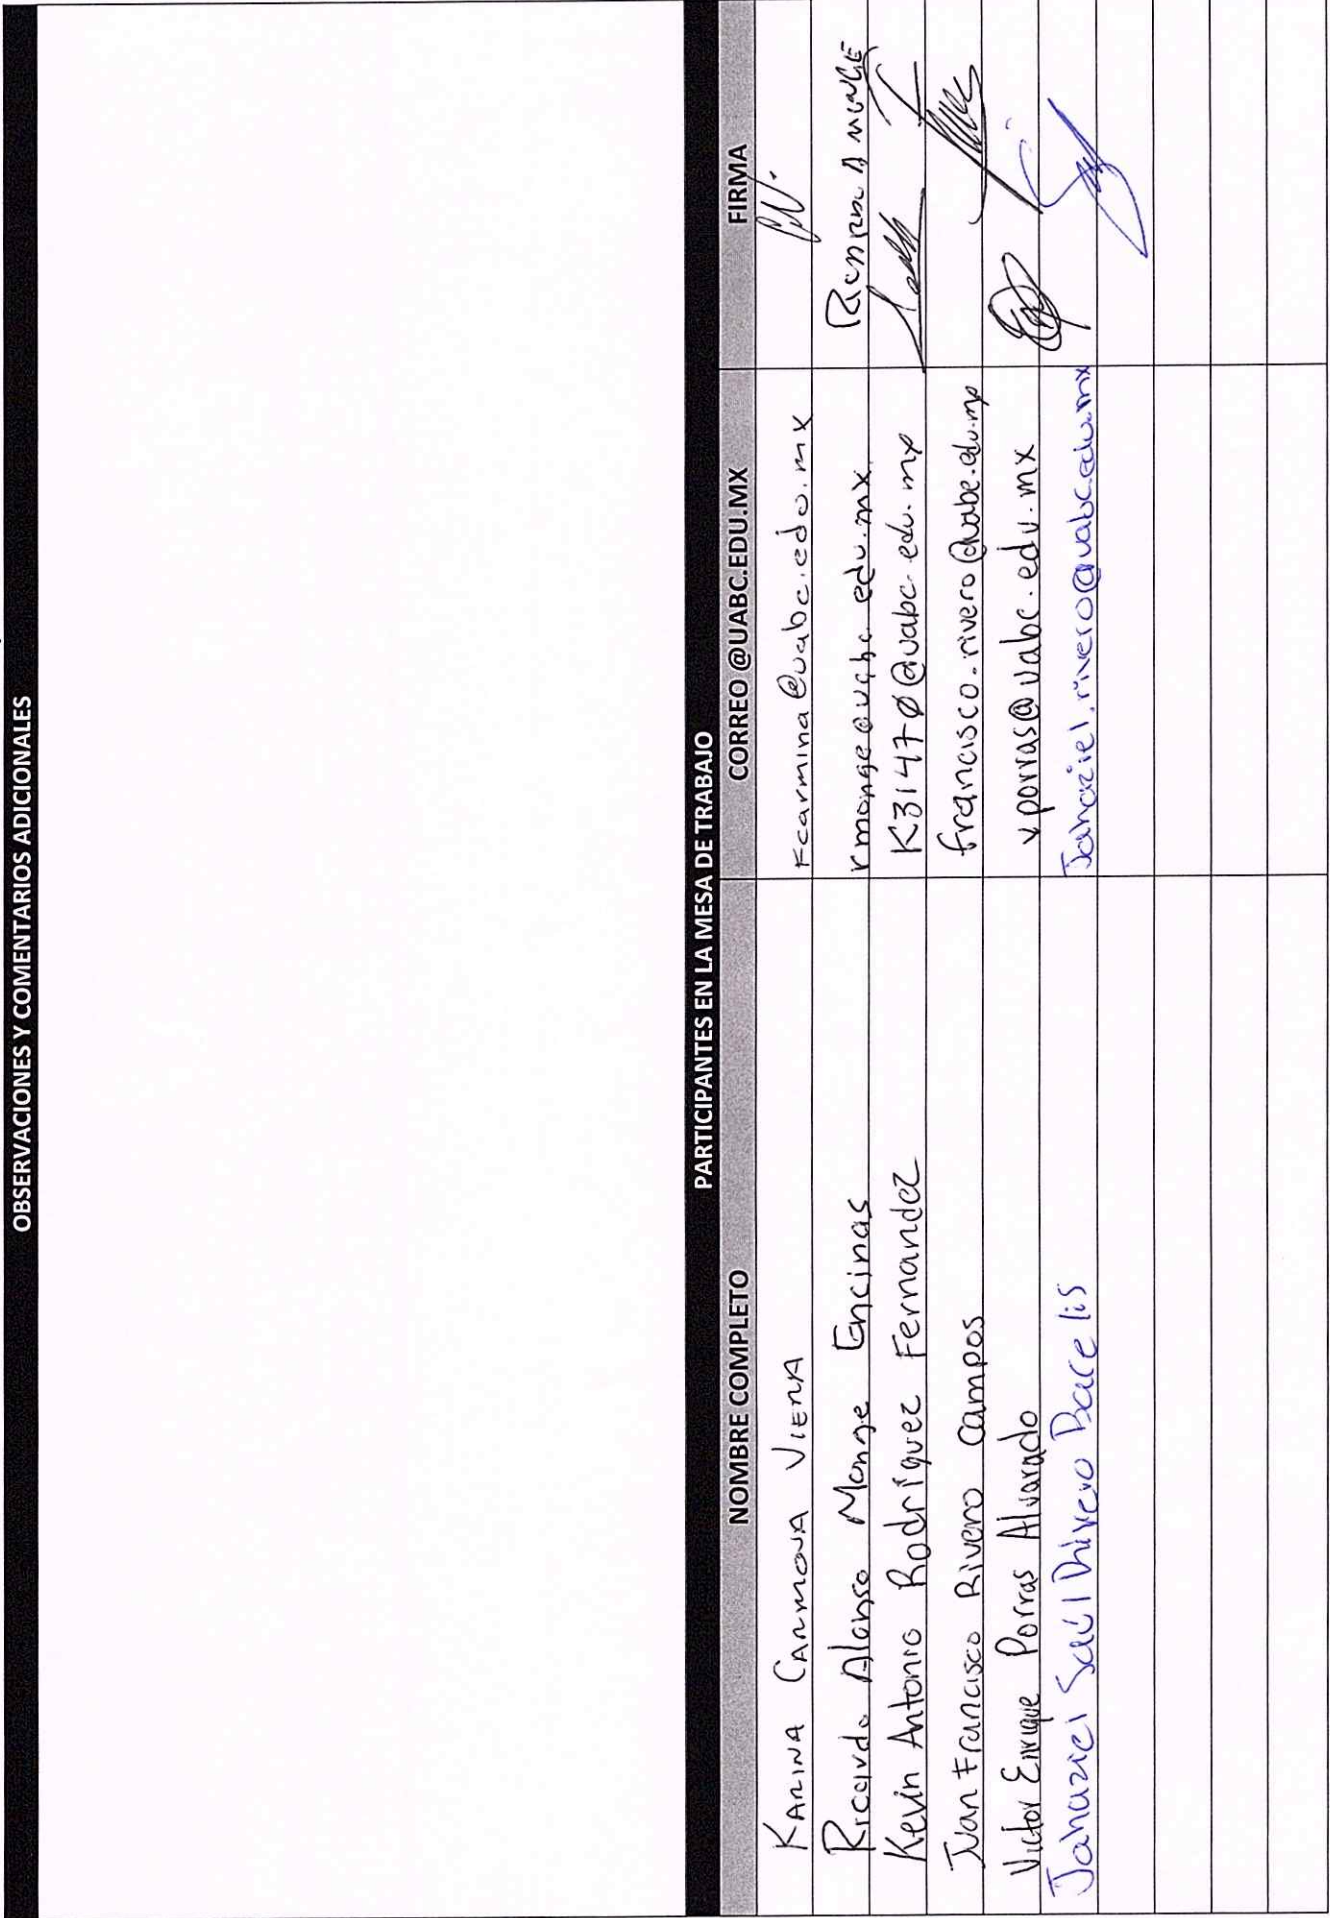 OBSERVACIONES Y COMENTARIOS ADICIONALES
PARTICIPANTES EN LA MESA DE TRABAJO
NOMBRE COMPLETO CORREO @UABC.EDU.MX FIRMA
KARINA CARMONA VIERA kcarmina@uabc.edu.mx
Ricardo Alonso Monge Encinas rmonge@uabc.edu.mx RICARDO A MONGE
Kevin Antonio Rodríguez Fernandez K31470@uabc.edu.mx
Juan Francisco Rivero Campos francisco.rivero@uabc.edu.mx
Victor Enrique Porras Alvarado vporras@uabc.edu.mx
Jahaziel Saúl Rivero Bacelis Jahaziel.rivero@uabc.edu.mx